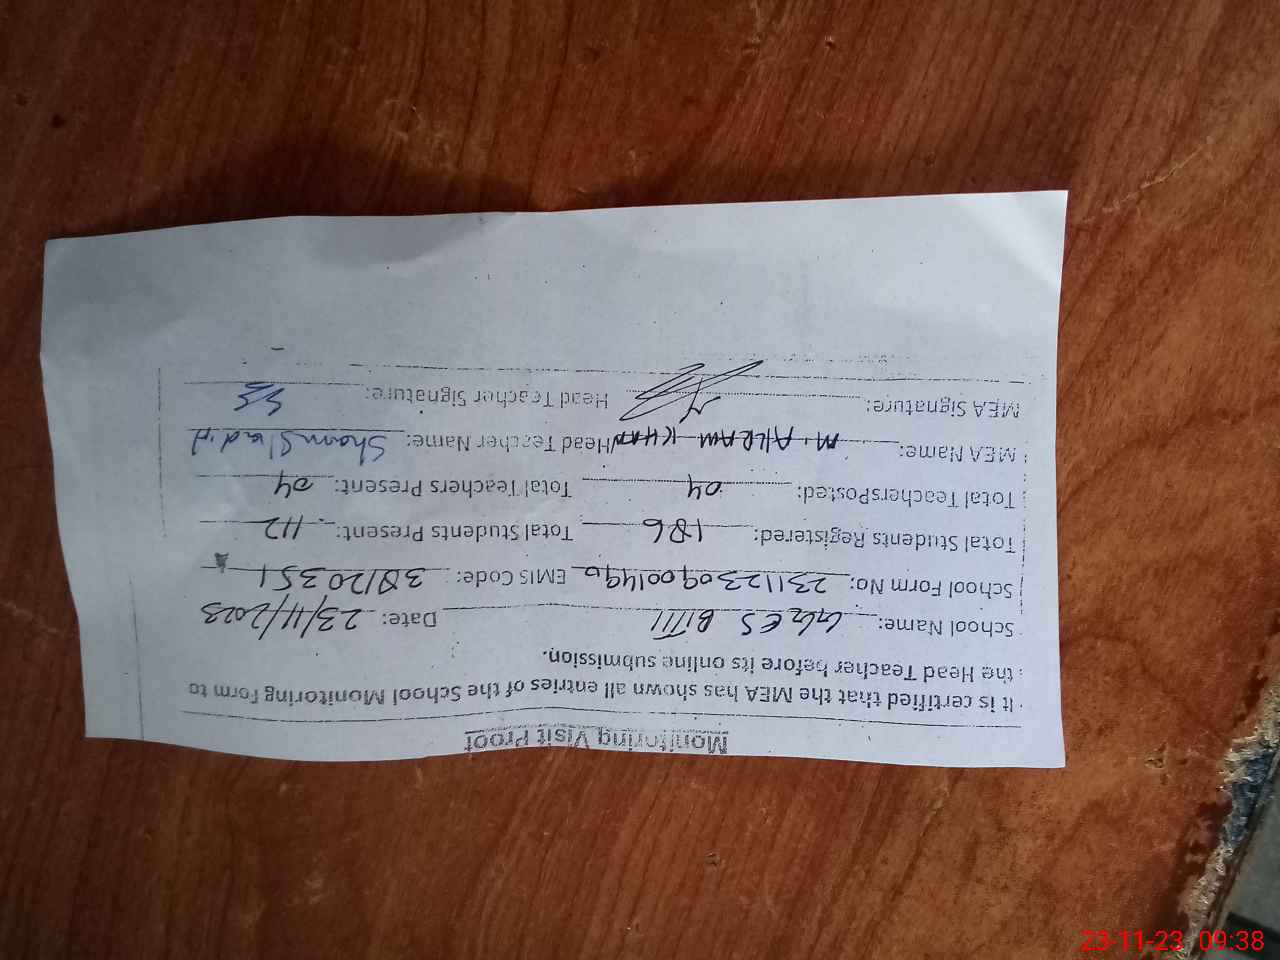 Monitoring Visit Proof
It is certified that the MEA has shown all entries of the School Monitoring Form to
the Head Teacher before its online submission.
School Name: GGES BITTI Date: 23/11/2023
School Form No: EMIS Code: 38120351
Total Students Registered: 186 Total Students Present: 112
Total TeachersPosted: 04 Total Teachers Present: 04
MEA Name: M. AKRAM KHAN Head Teacher Name:
MEA Signature: Head Teacher Signature: SS
23-11-23 09:38